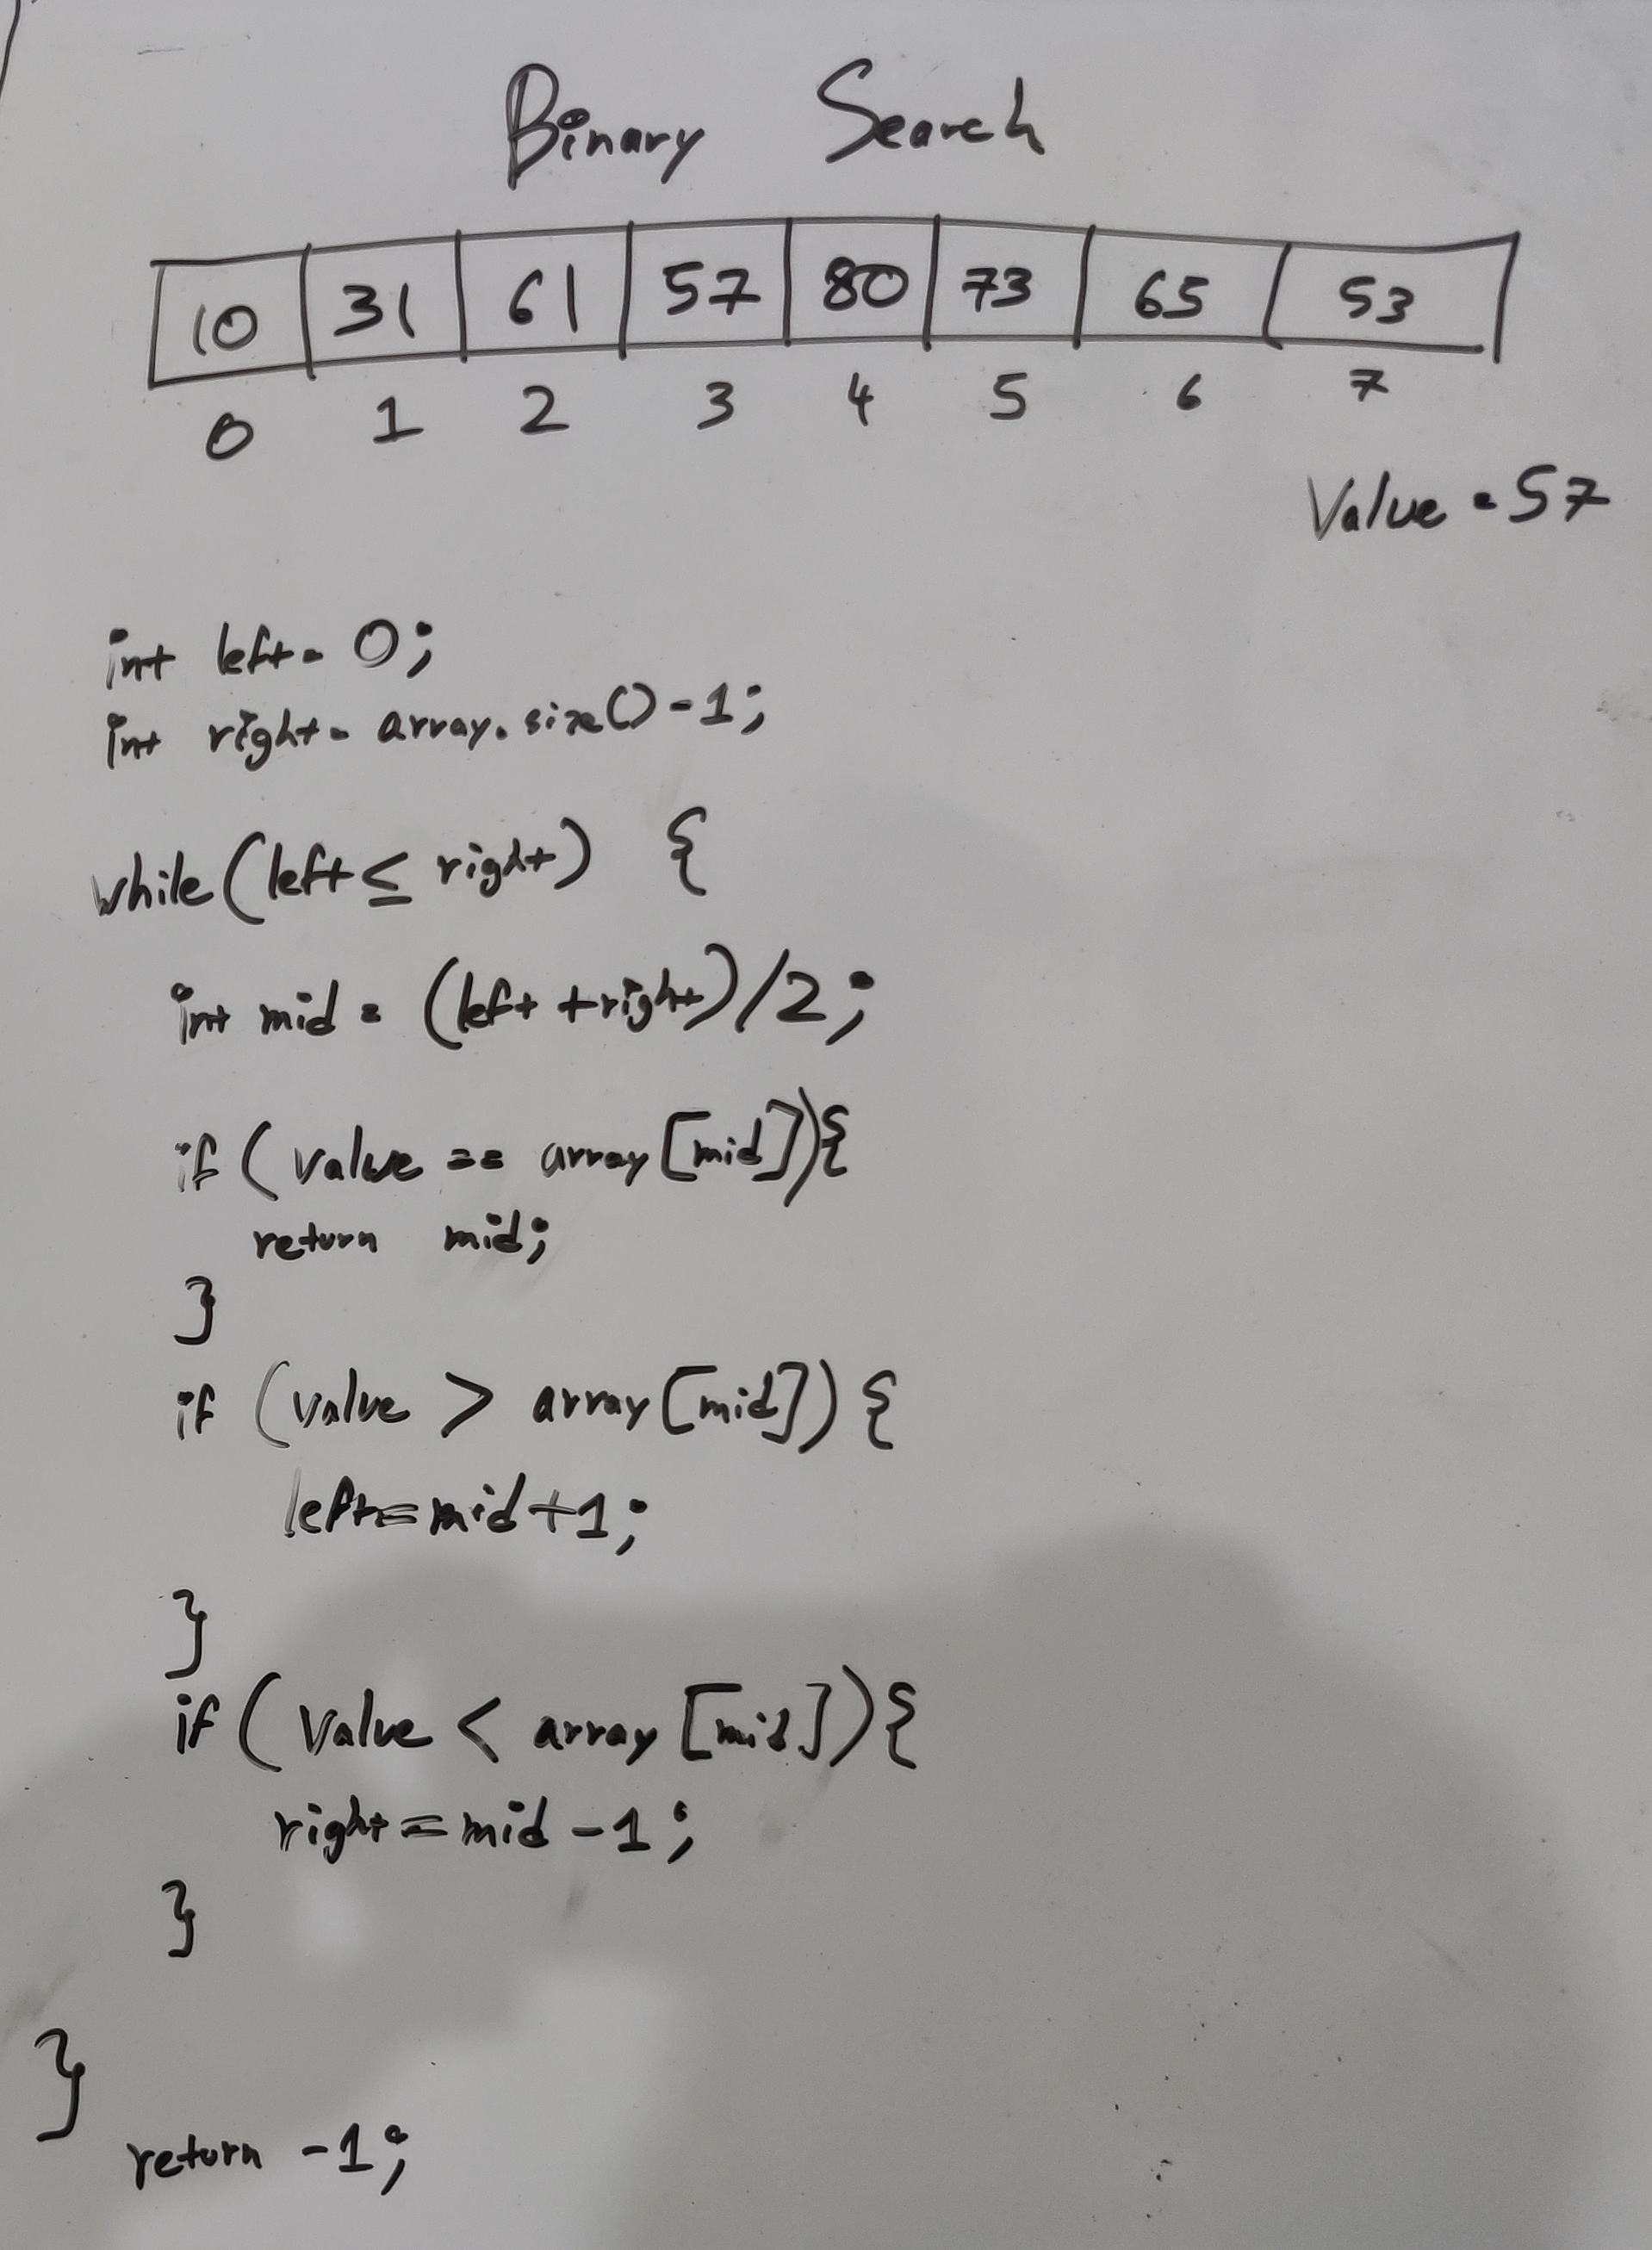 Binary Search
10 31 61 57 80 73 65 53
0 1 2 3 4 5 6 7
Value = 57
int left = 0;
int right = array.size()-1;
while (left ≤ right) {
int mid = (left + right)/2;
if (value == array[mid]){
return mid;
}
if (value > array[mid]) {
left = mid+1;
}
if (value < array[mid]){
right = mid -1;
}
}
return -1;